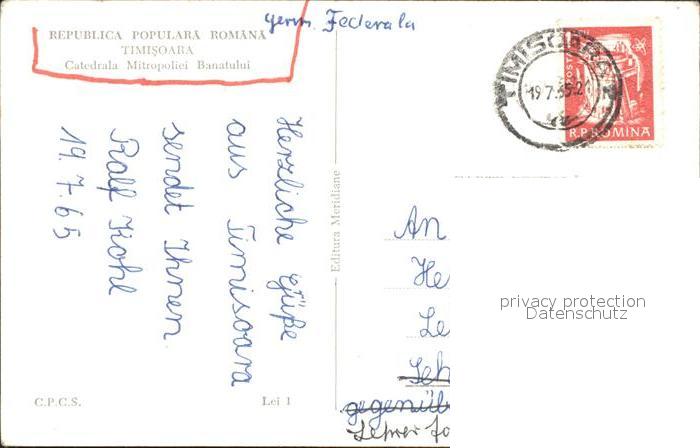 REPUBLICA POPULARĂ ROMÂNĂ
TIMIȘOARA
Catedrala Mitropoliei Banatului
germ. Federala
TIMISOARA
19.7.65.21
POSTA
R.P.ROMINA
Herzliche Grüße
aus Timisoara
sendet Ihnen
Ralf Kohl
19.7.65
Editura Meridiane
An
He
Le
Seh
gegenüb
Lehrer
privacy protection
Datenschutz
C.P.C.S.
Lei 1